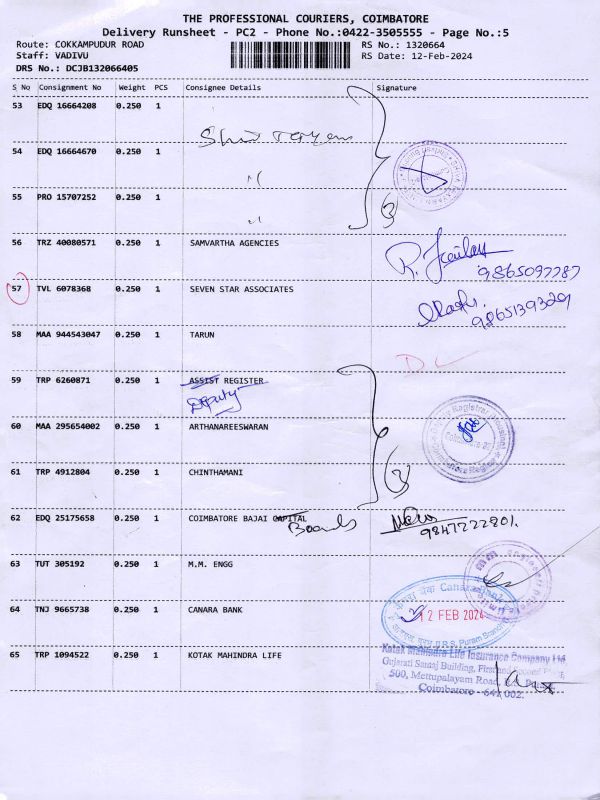 THE PROFESSIONAL COURIERS, COIMBATORE
Delivery Runsheet - PC2 - Phone No.:0422-3505555 - Page No.:5
Route: COKKAMPUDUR ROAD
RS No.: 1320664
Staff: VADIVU
RS Date: 12-Feb-2024
DRS No.: DCJB132066405
S No Consignment No Weight PCS Consignee Details Signature
53 EDQ 16664208 0.250 1
54 EDQ 16664670 0.250 1
55 PRO 15707252 0.250 1
(3)
56 TRZ 40080571 0.250 1 SAMVARTHA AGENCIES
9865097787
57 TVL 6078368 0.250 1 SEVEN STAR ASSOCIATES
58 MAA 944543047 0.250 1 TARUN
DL
59 TRP 6260871 0.250 1 ASSIST REGISTER
Deputy
60 MAA 295654002 0.250 1 ARTHANAREESWARAN
61 TRP 4912804 0.250 1 CHINTHAMANI
(3)
62 EDQ 25175658 0.250 1 COIMBATORE BAJAI CAPITAL
Boards
9847222801.
63 TUT 305192 0.250 1 M.M. ENGG
64 TNJ 9665738 0.250 1 CANARA BANK
12 FEB 2024
R.S. Puram
65 TRP 1094522 0.250 1 KOTAK MAHINDRA LIFE
Kotak Mahindra Life Insurance Company Ltd
Gujarati Samaj Building,
500, Mettupalayam Road,
Coimbatore - 641 002.